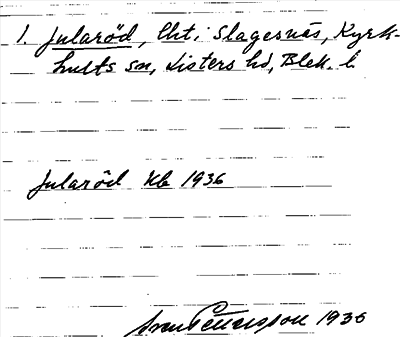 1. Jularöd, Lht i Slagesnäs, Kyrk-
hults sn, Listers hd, Blek. l.
Jularöd Kb 1936
Sven Benson 1936